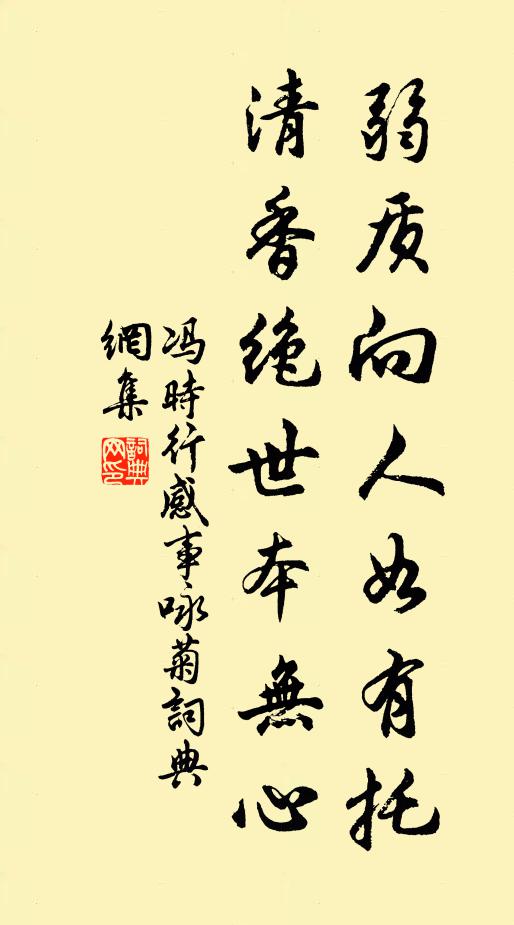 弱质向人如有托
清香绝世本無心
冯時行感事咏菊詞典
網集
詞典网印